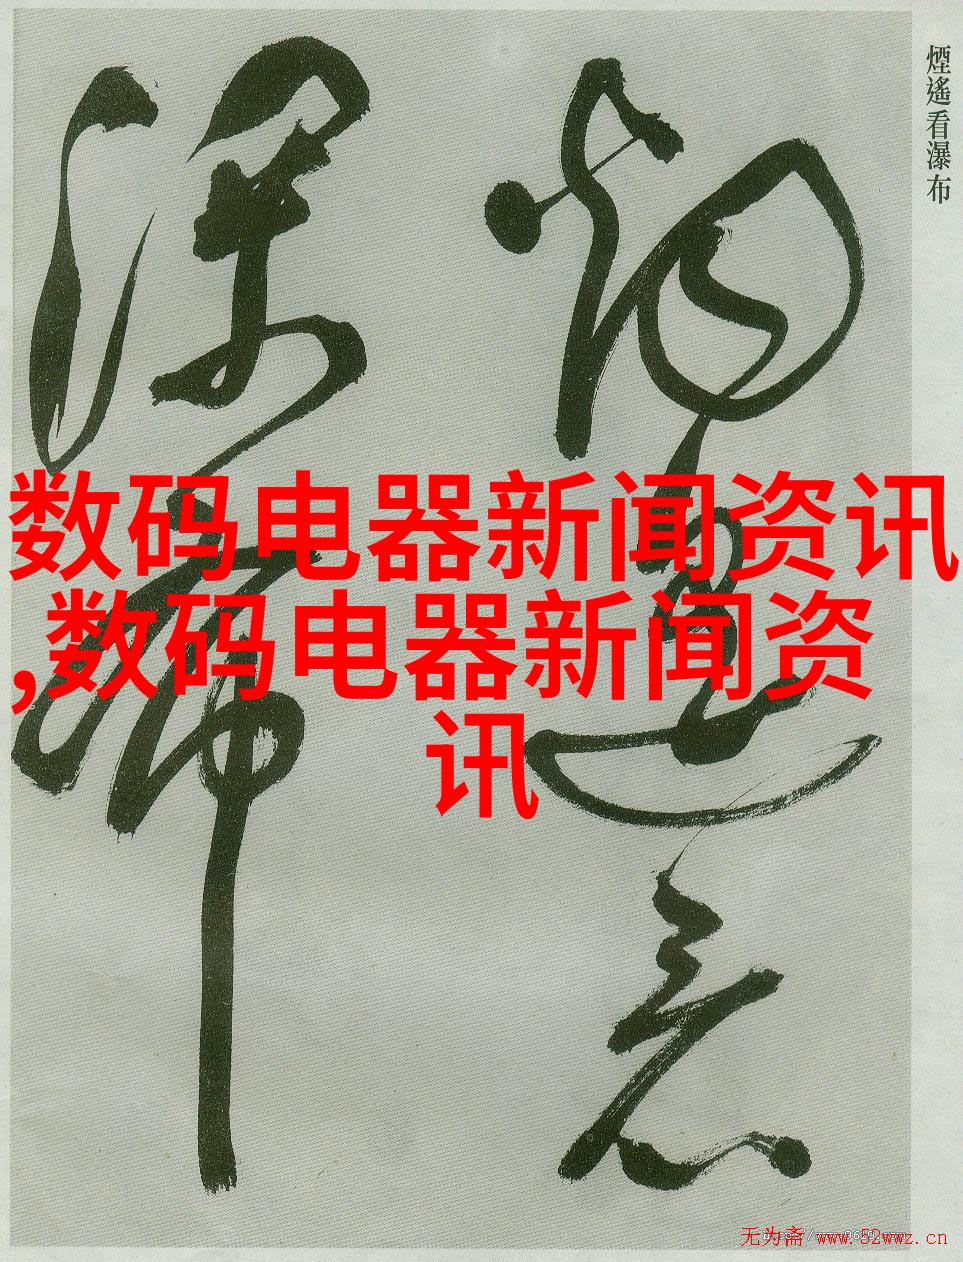 煙遙看瀑布
数码电器新闻资讯
,数码电器新闻资
讯
无为斋 www.52wwz.cn